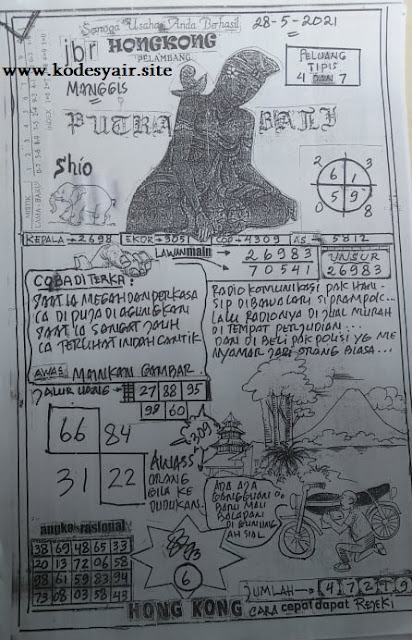 Semoga Usaha Anda Berhasil
28-5-2021
jbr HONGKONG
PELAMBANG
www.kodesyair.site
MANGGIS
PELUANG
TIPIS
4 7
PUTRA BALI
Shio
2 3
6 1
5 9
0 8
KEPALA = 2698 EKOR = 9051 COP = 4309 AS = 5812
LAWAN main
26983
70541
UNSUR
26983
COBA DI TERKA:
SAAT IA MEGAH DAN PERKASA
IA DI PUJA DI AGUNGKAN
SAAT IA SANGAT JAUH
IA TERLIHAT INDAH CANTIK
AWAS MAINKAN GAMBAR
RADIO KOMUNIKASI PAK HAN-
SIP DI BAWA LARI SI PRAMPOK...
LALU RADIONYA DI JUAL MURAH
DI TEMPAT PERJUDIAN...
DAN DI BELI PAK POLISI YG ME
NYAMAR JADI ORANG BIASA...
JALUR UANG
27 88 95
98 60
66 84
31 22
4309
AWASS
ORANG
BILA KE
DUDUKAN
ADA AJA
GANGGUAN
BARU MAU
BALAPAN
DI GUNUNG
AH SIAL
angka rasional
38 69 48 65 33
20 13 72 06 58
98 61 59 83 94
73 08 03 58 43
6
JUMLAH
HONG KONG
CARA cepat dapat REJEKI